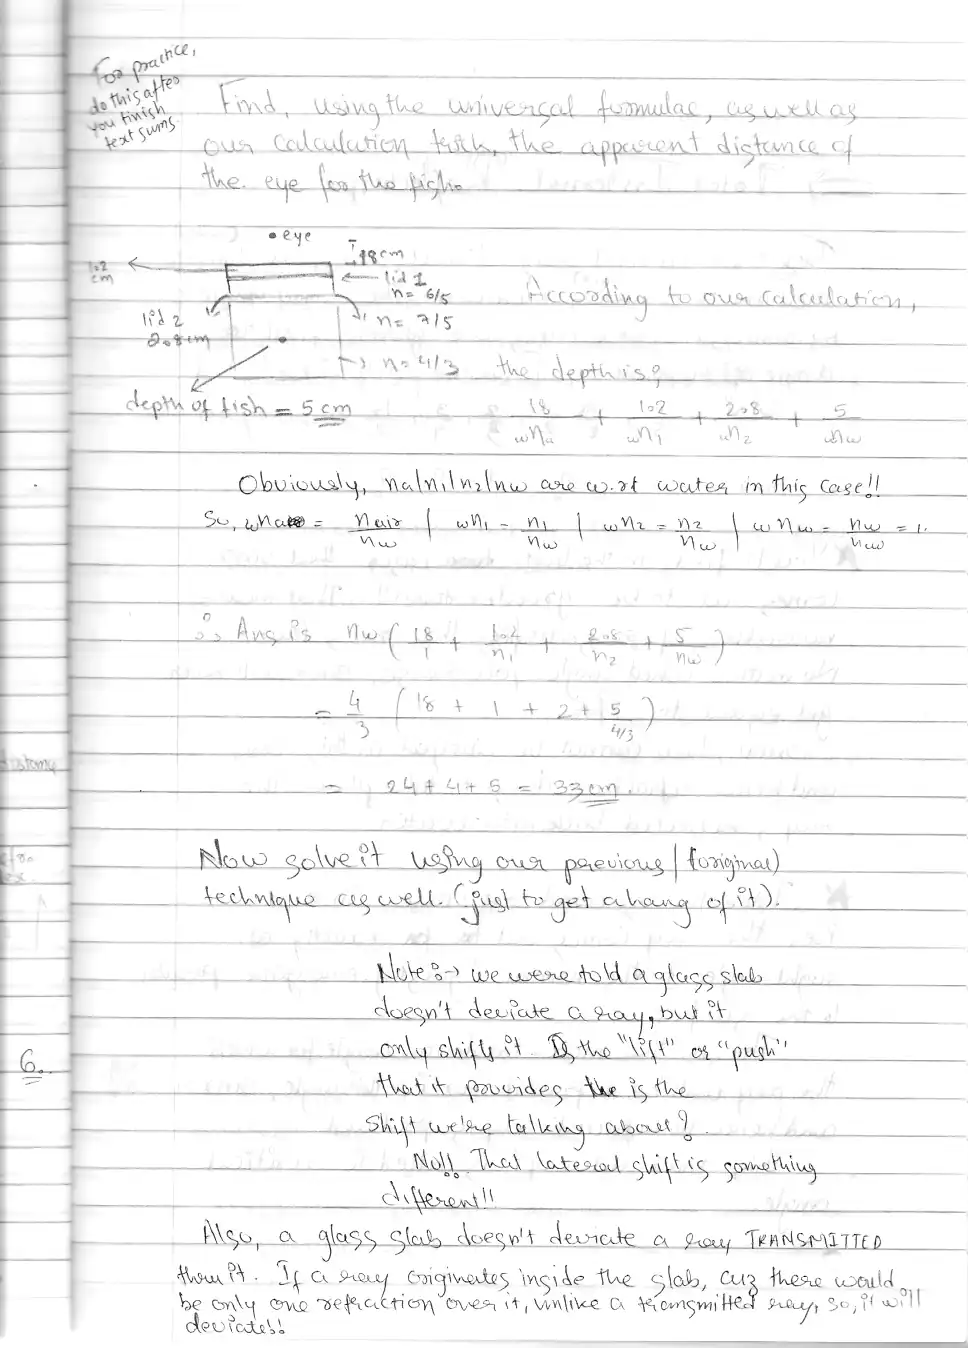 For practice,
do this after
you finish
text sums.
Find, using the universal formulae, as well as
our calculation trick, the apparent distance of
the eye for the fish.
• eye
18cm
1.2
cm
lid 1
n = 6/5
According to our calculation,
lid 2
2.8cm
n = 7/5
n = 4/3
the depth is:
depth of fish = 5cm
18/wna + 1.2/wn1 + 2.8/wn2 + 5/wnw
Obviously, na/n1/n2/nw are w.rt water in this case!!
So, wna = nair/nw | wn1 = n1/nw | wn2 = n2/nw | wnw = nw/nw = 1.
∴ Ans is nw ( 18/1 + 1.2/n1 + 2.8/n2 + 5/nw )
= 4/3 ( 18 + 1 + 2 + 5/4/3 )
= 24 + 4 + 5 = 33cm.
Now solve it using our previous / (original)
technique as well. (just to get a hang of it).
Note:→ we were told a glass slab
doesn't deviate a ray, but it
only shifts it. Is the "lift" or "push"
that it provides the is the
shift we're talking about?
No!! That lateral shift is something
different!!
6.
Also, a glass slab doesn't deviate a ray TRANSMITTED
thru it. If a ray originates inside the slab, cuz there would
be only one refraction over it, unlike a transmitted ray, so, it will
deviate!!